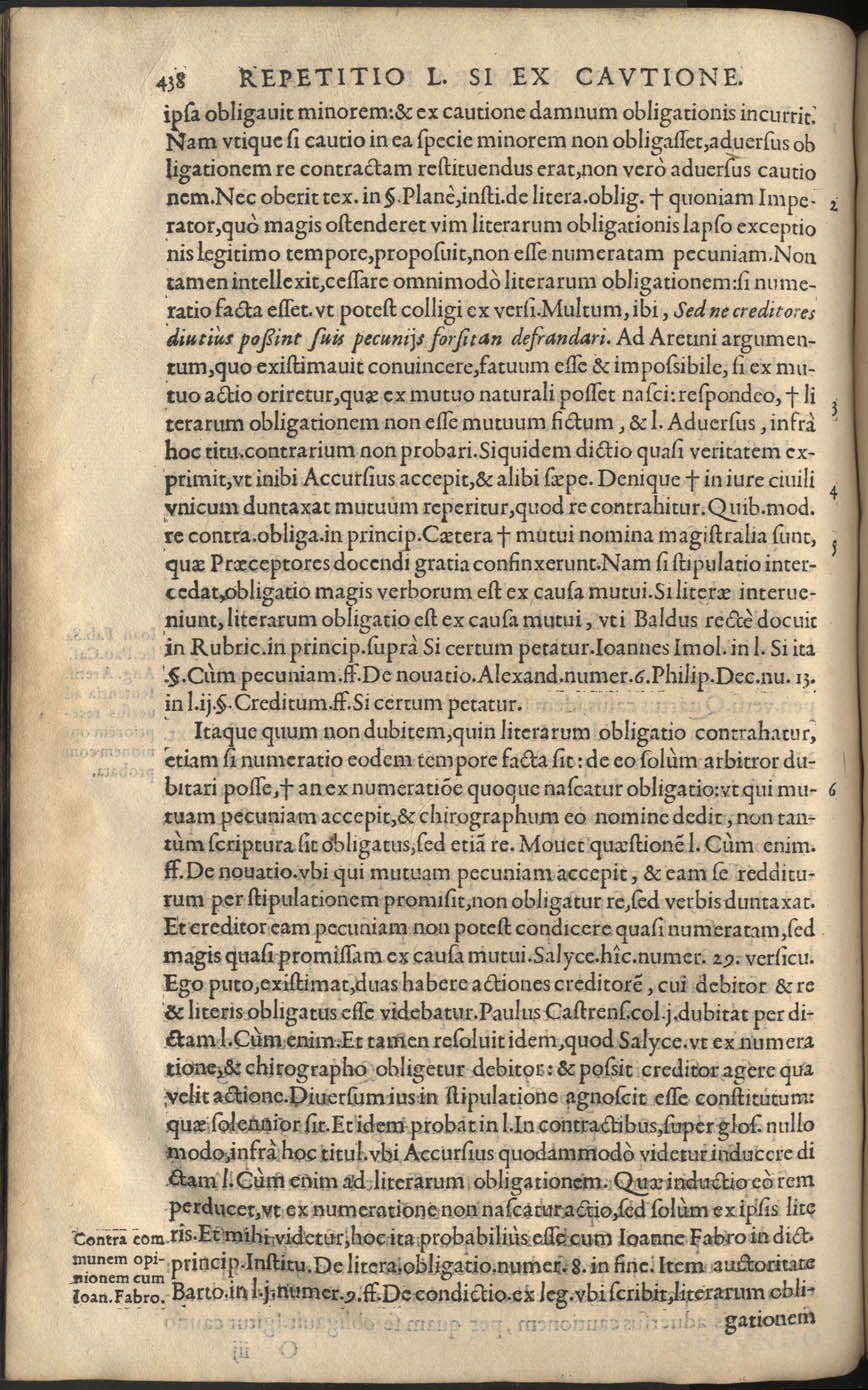 438 REPETITIO L. SI EX CAVTIONE.
ipſa obligauit minorem:& ex cautione damnum obligationis incurrit.
Nam vtique ſi cautio in ea ſpecie minorem non obligaſſet,aduerſus ob
ligationem re contractam reſtituendus erat,non verò aduerſus cautio
nem.Nec oberit tex. in §.Planè,inſti.de litera.oblig. † quoniam Impe- 2
rator,quò magis oſtenderet vim literarum obligationis lapſo exceptio
nis legitimo tempore,propoſuit,non eſſe numeratam pecuniam.Non
tamen intellexit,ceſſare omnimodò literarum obligationem:ſi nume-
ratio facta eſſet.vt poteſt colligi ex verſi.Multum, ibi, Sed ne creditores
diutiùs poßint ſuis pecunijs forſitan defrandari. Ad Aretini argumen-
tum,quo exiſtimauit conuincere,fatuum eſſe & impoſsibile, ſi ex mu-
tuo actio oriretur,quæ ex mutuo naturali poſſet naſci: reſpondeo, † li 3
terarum obligationem non eſſe mutuum fictum, & l. Aduerſus, infrà
hoc titu.contrarium non probari.Siquidem dictio quaſi veritatem ex-
primit,vt inibi Accurſius accepit,& alibi ſæpe. Denique † in iure ciuili 4
vnicum duntaxat mutuum reperitur,quod re contrahitur.Quib.mod.
re contra.obliga.in princip.Cætera † mutui nomina magiſtralia ſunt, 5
quæ Præceptores docendi gratia confinxerunt.Nam ſi ſtipulatio inter-
cedat,obligatio magis verborum eſt ex cauſa mutui.Si literæ interue-
niunt,literarum obligatio eſt ex cauſa mutui, vti Baldus rectè docuit
in Rubric.in princip.ſuprà Si certum petatur.Ioannes Imol. in l. Si ita
§.Cùm pecuniam.ff.De nouatio.Alexand.numer.6.Philip.Dec.nu. 13.
in l.ij.§.Creditum.ff.Si certum petatur.
Itaque quum non dubitem,quin literarum obligatio contrahatur,
etiam ſi numeratio eodem tempore facta ſit: de eo ſolùm arbitror du-
bitari poſſe,† an ex numeratiõe quoque naſcatur obligatio:vt qui mu- 6
tuam pecuniam accepit,& chirographum eo nomine dedit, non tan-
tùm ſcriptura ſit obligatus,ſed etiã re. Mouet quæſtionẽ l. Cùm enim.
ff.De nouatio.vbi qui mutuam pecuniam accepit, & eam ſe redditu-
rum per ſtipulationem promiſit,non obligatur re,ſed verbis duntaxat.
Et creditor eam pecuniam non poteſt condicere quaſi numeratam,ſed
magis quaſi promiſſam ex cauſa mutui.Salyce.hîc.numer. 29. verſicu.
Ego puto,exiſtimat,duas habere actiones creditorẽ, cui debitor & re
& literis obligatus eſſe videbatur.Paulus Caſtrenſ.col.j.dubitat per di-
ctam l.Cùm enim.Et tamen reſoluit idem,quod Salyce.vt ex numera
tione,& chirographo obligetur debitor: & poſsit creditor agere qua
velit actione.Diuerſum ius in ſtipulatione agnoſcit eſſe conſtitutum:
quæ ſolennior ſit.Et idem probat in l.In contractibus,ſuper gloſ. nullo
modo,infrà hoc titul.vbi Accurſius quodammodò videtur inducere di
ctam l.Cùm enim ad literarum obligationem. Quæ inductio eò rem
perducet,vt ex numeratione non naſcatur actio,ſed ſolùm ex ipſis lite
ris.Et mihi videtur,hoc ita probabiliùs eſſe cum Ioanne Fabro in dict.
princip.Inſtitu.De litera.obligatio.numer. 8. in fine. Item auctoritate
Barto.in l.j.numer.9.ff.De condictio.ex leg.vbi ſcribit,literarum obli-
gationem
Contra com
munem opi-
nionem cum
Ioan.Fabro.